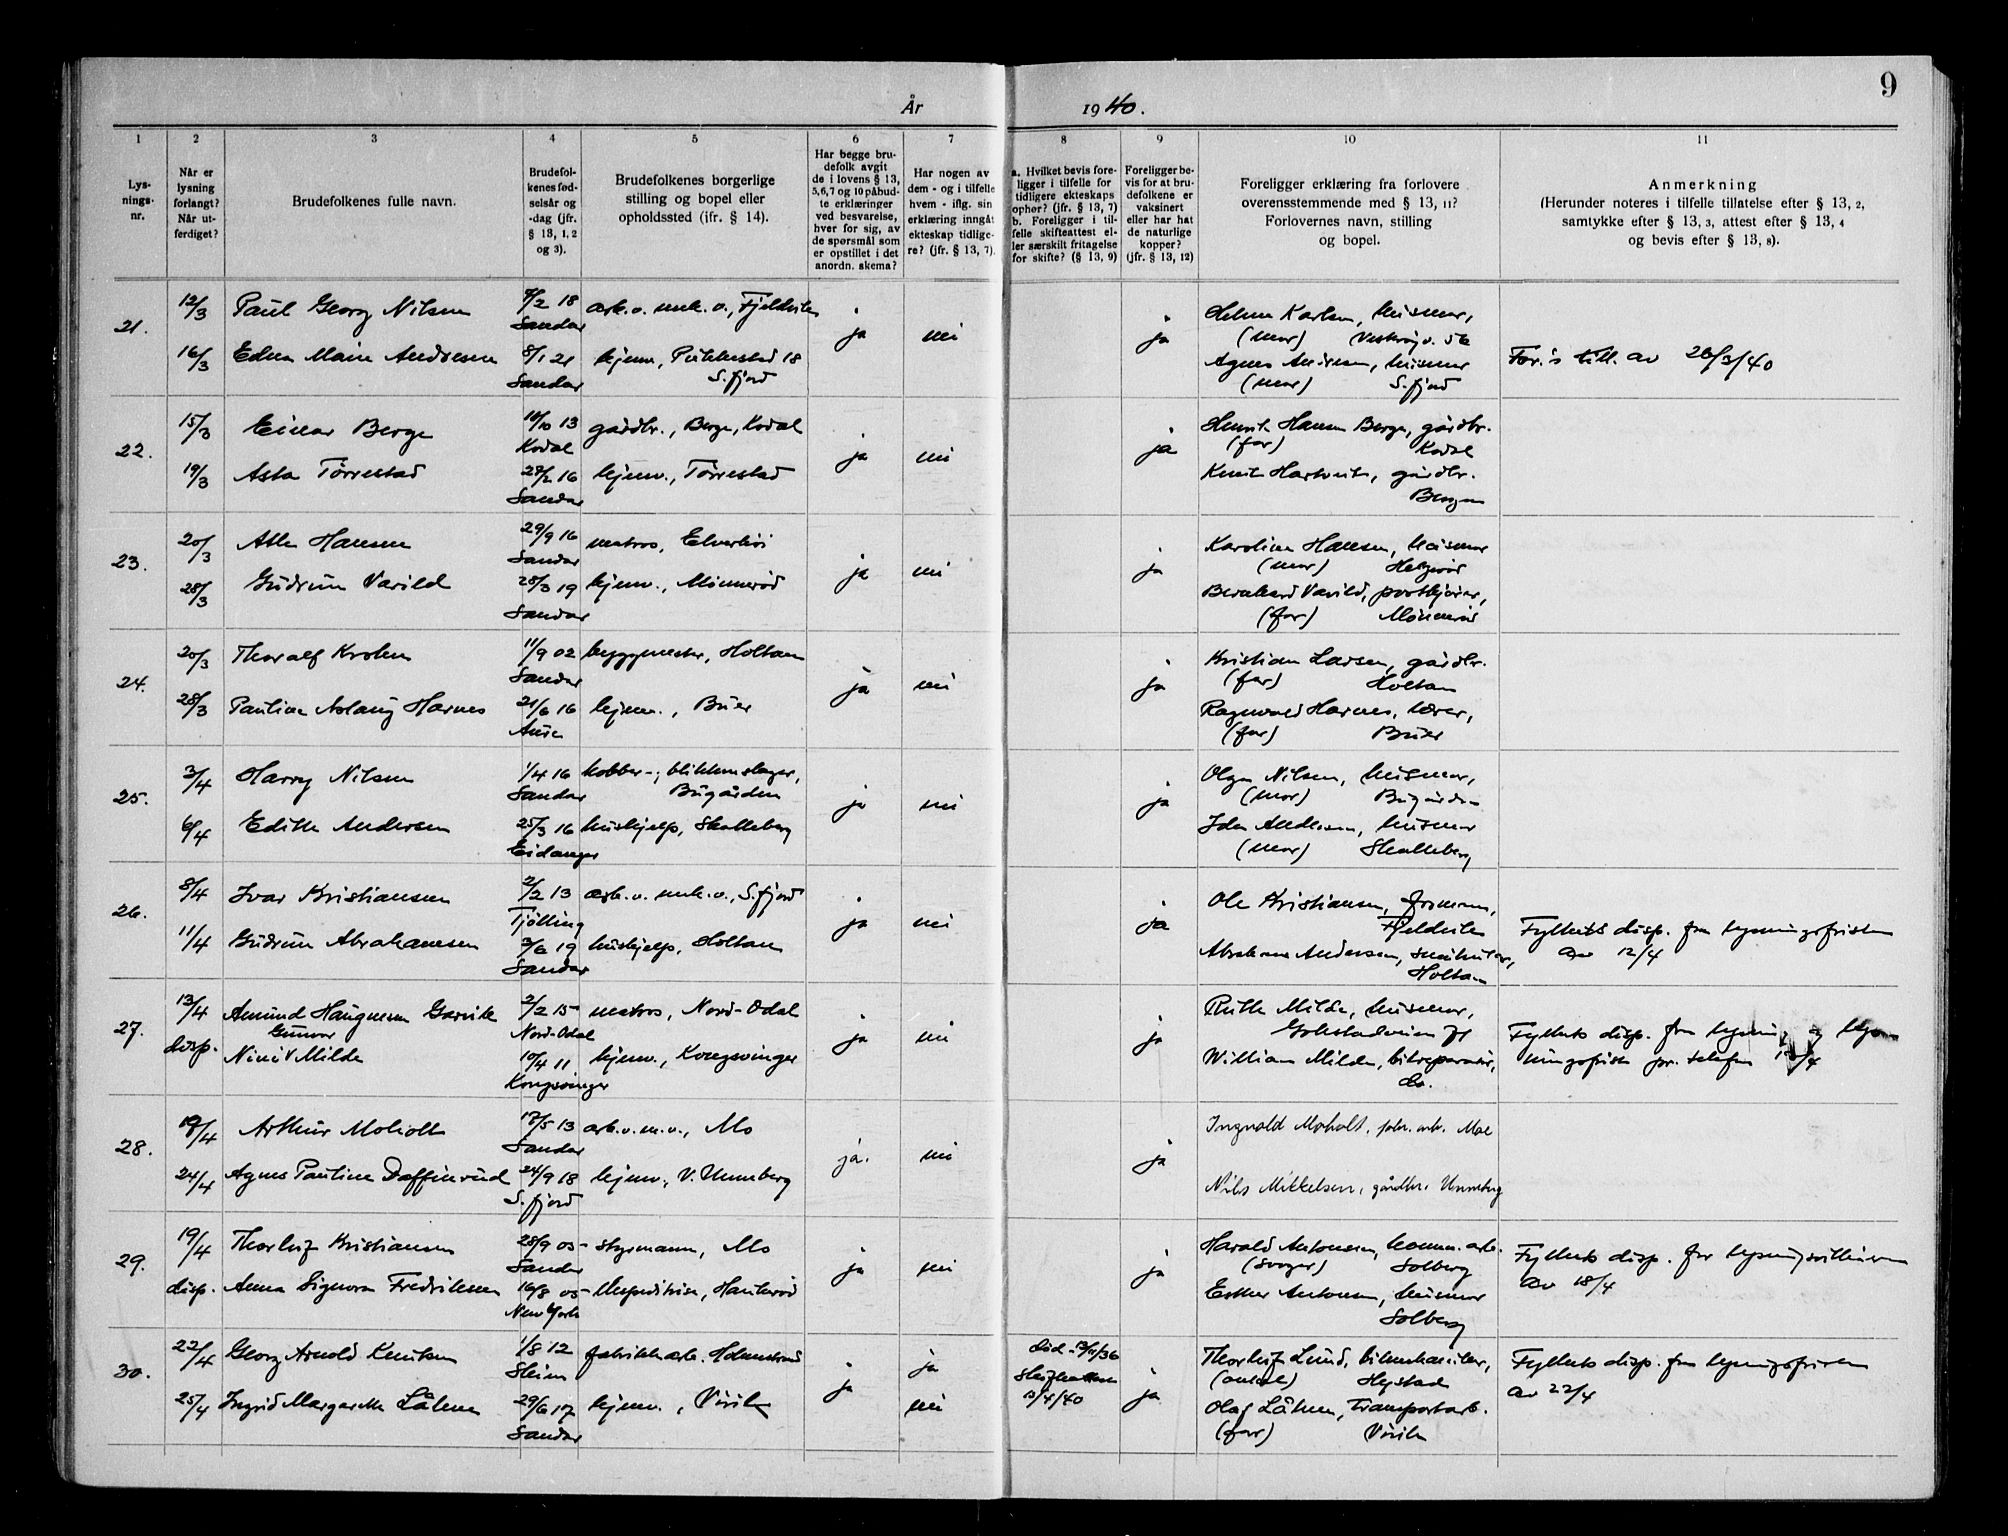 9
År 1940.
1 2 3 4 5 6 7 8 9 10 11
Lys-
nings-
nr.
Når er
lysning
forlangt?
Når ut-
ferdiget?
Brudefolkenes fulle navn.
Brudefol-
kenes fød-
selsår og
-dag (jfr.
§ 13, 1, 2
og 3).
Brudefolkenes borgerlige
stilling og bopel eller
opholdssted (ifr. § 14).
Har begge bru-
defolk avgit
de i lovens § 13,
5,6,7 og 10 påbud-
te erklæringer
ved besvarelse,
hver for sig, av
de spørsmål som
er opstillet i det
anordn. skema?
Har nogen av
dem - og i tilfelle
hvem - iflg. sin
erklæring inngåt
ekteskap tidlige-
re? (jfr. § 13, 7).
a. Hvilket bevis fore-
ligger i tilfelle for
tidligere ekteskaps
ophør? (jfr. § 13, 7)
b. Foreligger i til-
felle skifteattest el-
ler særskilt fritagelse
for skifte? (§ 13, 9)
Foreligger be-
vis for at bru-
defolkene er
vaksinert
eller har hat
de naturlige
kopper?
(jfr. § 13, 12)
Foreligger erklæring fra forlovere
overensstemmende med § 13, 11?
Forlovernes navn, stilling
og bopel.
Anmerkning
(Herunder noteres i tilfelle tillatelse efter § 13, 2,
samtykke efter § 13, 3, attest efter § 13, 4
og bevis efter § 13, 8).
21. 12/3 Paul Georg Nilsen 18 Sandar ark. v. mek. v., Fjeldvik ja nei ja Karlsen, husmor,
(mor)
16/3 Edna Andresen 8/1 21 Sandar hjemv., Pukkestad 18
S.fjord
Agnes Andresen, husmor
(mor) S.fjord
For.s till. av 26/3/40
22. 15/3 Einar Berge 10/10 13 Kodal gårdbr., Berge, Kodal ja nei ja Henrik Hansen Berge, gårdbr.
(far) Kodal
19/3 Asta Tørrestad 28/2 16 Sandar hjemv., Tørrestad
Knut gårdbr.
Bergan
23. 20/3 Atle Hansen 29/9 16 Sandar matros, ja nei ja Karoline Hansen, husmor
(mor) Helgerød
28/3 Gudrun Varild 25/3 19 Sandar hjemv., Mønnerød
Bernhard Varild, postkjører,
(far) Mønnerød
24. 20/3 Thoralf 11/9 02 Sandar byggmester, Holtan ja nei ja Kristian Larsen, gårdbr.
(far) Holtan
28/3 Pauline Aslaug Harnes 21/6 16 Aure hjemv., Buer
Ragnvald Harnes, lærer,
(far) Buer
25. 3/4 Harry Nilsen 1/4 16 Sandar kobber-, blikkenslager,
Bugården ja nei ja Olga Nilsen, husmor,
(mor) Bugården
6/4 Edith Andersen 25/3 16 Eidanger hushjelp, Skalleberg
Ida Andersen, husmor
(mor) Skalleberg
26. 8/4 Ivar Kristiansen 2/2 13 Tjølling ark. v. mek. v., S.fjord ja nei ja Ole Kristiansen, formann,
Fjeldvik
11/4 Gudrun Abrahamsen 3/6 19 Sandar hushjelp, Holtan
Abraham Andersen,
Holtan
Fylkets disp. fra lysningsfristen
av 12/4
27. 13/4 Amund Haugnem 2/2 15 Nord-Odal matros, Nord-Odal ja nei ja Ruth Milde, husmor,
Gokstadveien
disp. Gunvor
Nini Milde 10/4 11 Kongsvinger hjemv., Kongsvinger
William Milde, bilreparatør,
do.
Fylkets disp. fra lysning og
pr. telefon
28. 19/4 Arthur Moholt 17/5 13 Sandar ark. v. m. v., Mo ja. nei ja Ingvald Moholt, Moe
24/4 Agnes Pauline Daffinrud 24/9 18 S.fjord hjemv., V. Unneberg
Nils Mikkelsen, gårdbr. Unneberg
29. 19/4 Thorleif Kristiansen 28/9 05 Sandar styrmann, Mo ja nei ja Harald Antonsen, komm. arb.
(svoger) Solberg
disp. Anna Signora Fredriksen 16/8 05 New York Haukerød
Esther Antonsen, husmor
Solberg
Fylkets disp. for
av 18/4
30. 22/4 Georg Arnold Knutsen 1/8 12 fabrikkarb. Holmestrand ja ja ja Thorleif Lund,
(onkel) Hystad
25/4 Ingrid Margarethe Låhne 29/6 17 Sandar hjemv., Virik nei
Olaf Låhne, transportarb.
(far) Virik
Fylkets disp. fra lysningsfristen
av 22/4